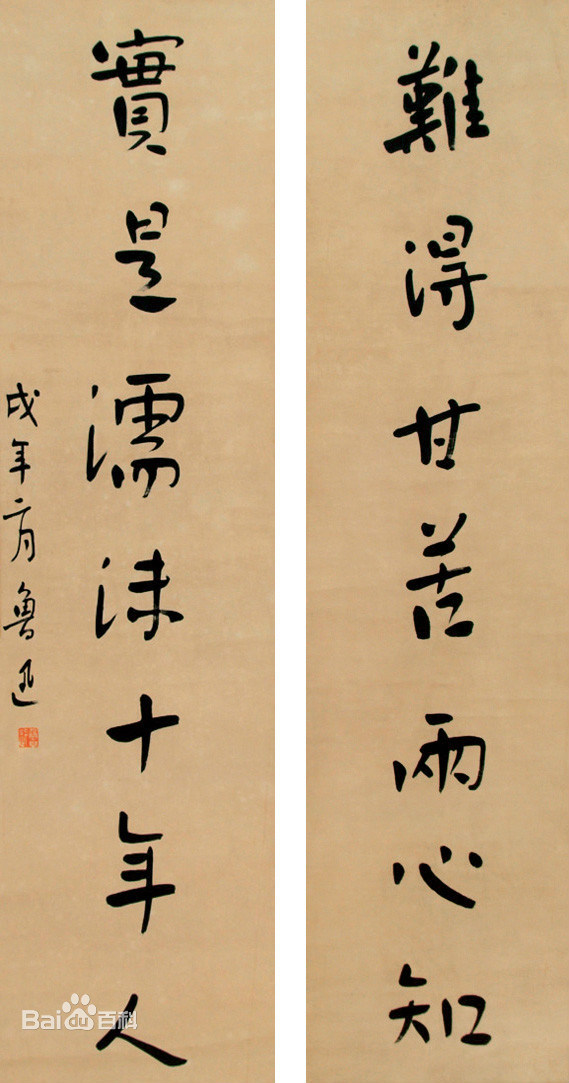 難得甘苦兩心知
實是濡沫十年人
戌年二月 魯迅
Baidu百科